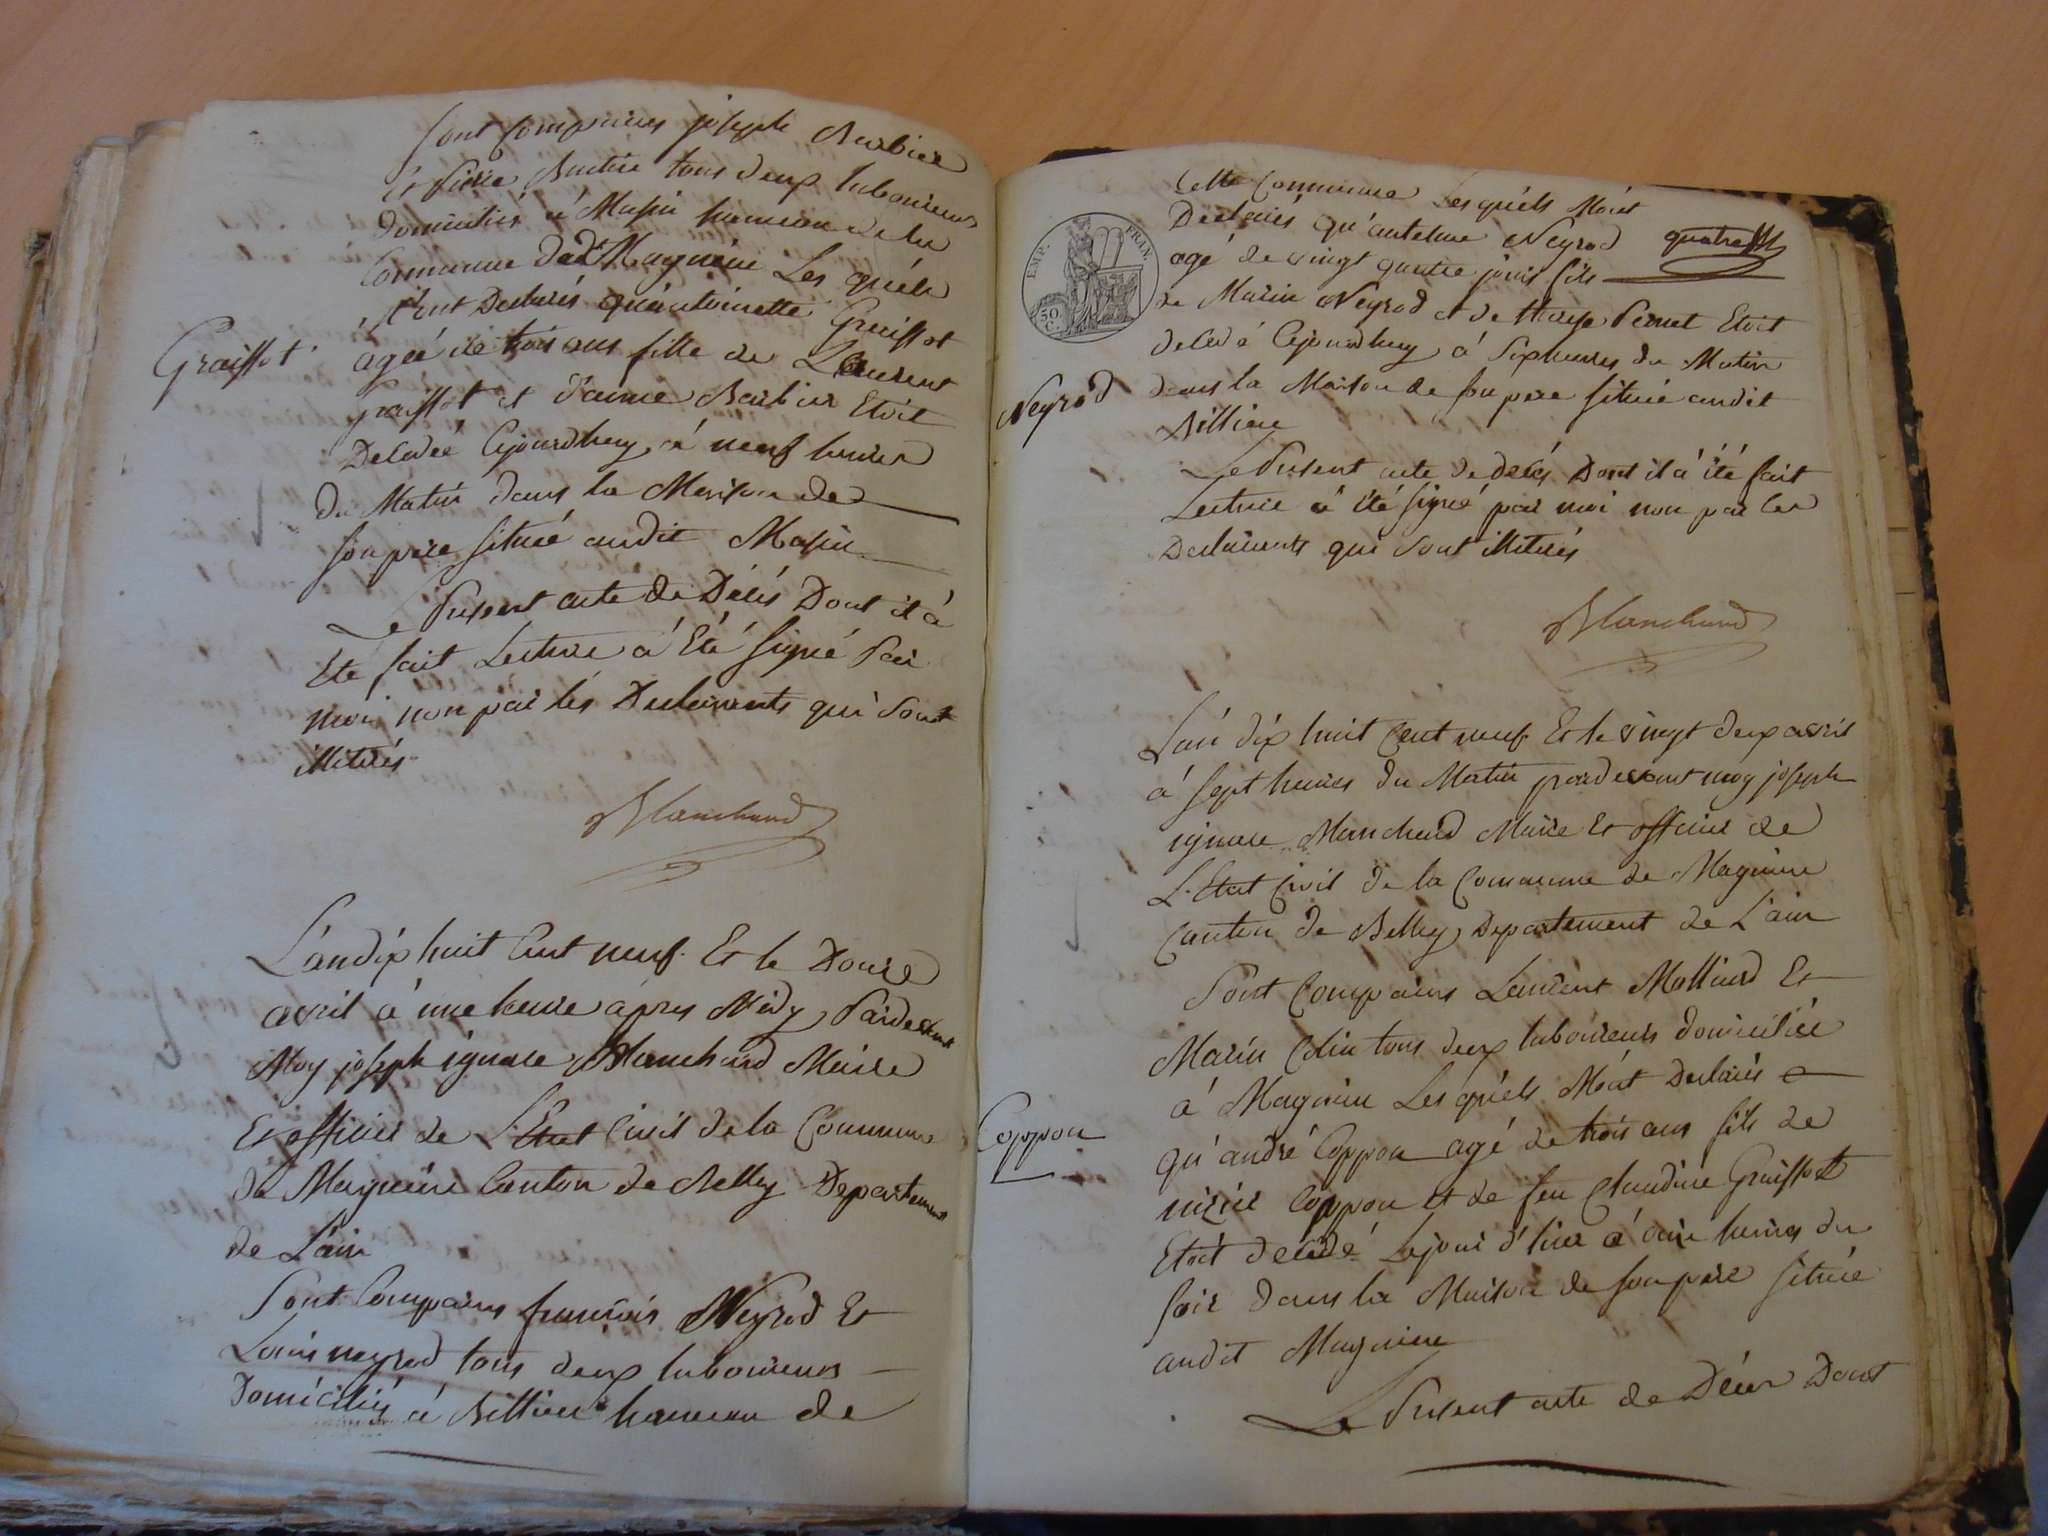 Sont Comparus joseph Barbier
Et Pierre Barbier tous deux laboureurs
domiciliés á Massin hameau de la
Commune de Magnieu Les quéls
M'ont Declarés qu'antoinette Graiffot
Graiffot
ageé de trois ans fille de Laurent
graiffot et d'anne Barbier Etoit
Decedeé Cejourdhuy á neuf heures
du Matin dans la Maison de
son pere située audit Massin
Le Present acte de Décés Dont il á
Ete fait Lecture á Eté signé Par
moi non par les Declarants qui sont
illiterés
Blanchard
L'an dix huit Cent neuf Et le Douze
avril á une heure áprés Midy Pardevant
Moy joseph ignace Blanchard Maire
Et officier de L'Etat Civil de la Commune
de Magnieu Canton de Belley Departement
de L'ain
Sont Comparus francois Neyrod Et
Louis neyrod tous deux laboureurs
Domiciliés á Billieu hameau de
EMP. FRAN.
50 C.
Cette Commune Les quéls M'ont
Declarés qu'antelme Neyrod
agé de vingt quatre jours fils
de Marin Neyrod et de Perret Etoit
decedé Cejourdhuy á six heures du Matin
Neyrod
dans la Maison de son pere située audit
Billieu
Le Present acte de décés Dont il á été fait
Lecture á été signé par moi non par les
Declarants qui sont illiterés
Blanchard
L'an dix huit Cent neuf Et le vingt deux avril
á sept heures du Matin pardevant moy joseph
ignace Blanchard Maire Et officier de
L'Etat Civil de la Commune de Magnieu
Canton de Belley Departement de L'ain
Sont Comparus Laurent Molliard Et
Marin Colin tous deux laboureurs domiciliés
á Magnieu Les quéls M'ont Declarés
Coppon
qu'andré Coppon agé de trois ans fils de
Coppon et de feu Claudine Graiffot
Etoit decédé Le jour d'hier á onze heures du
soir dans la Maison de son pere située
audit Magnieu
Le Present acte de Décés Dont